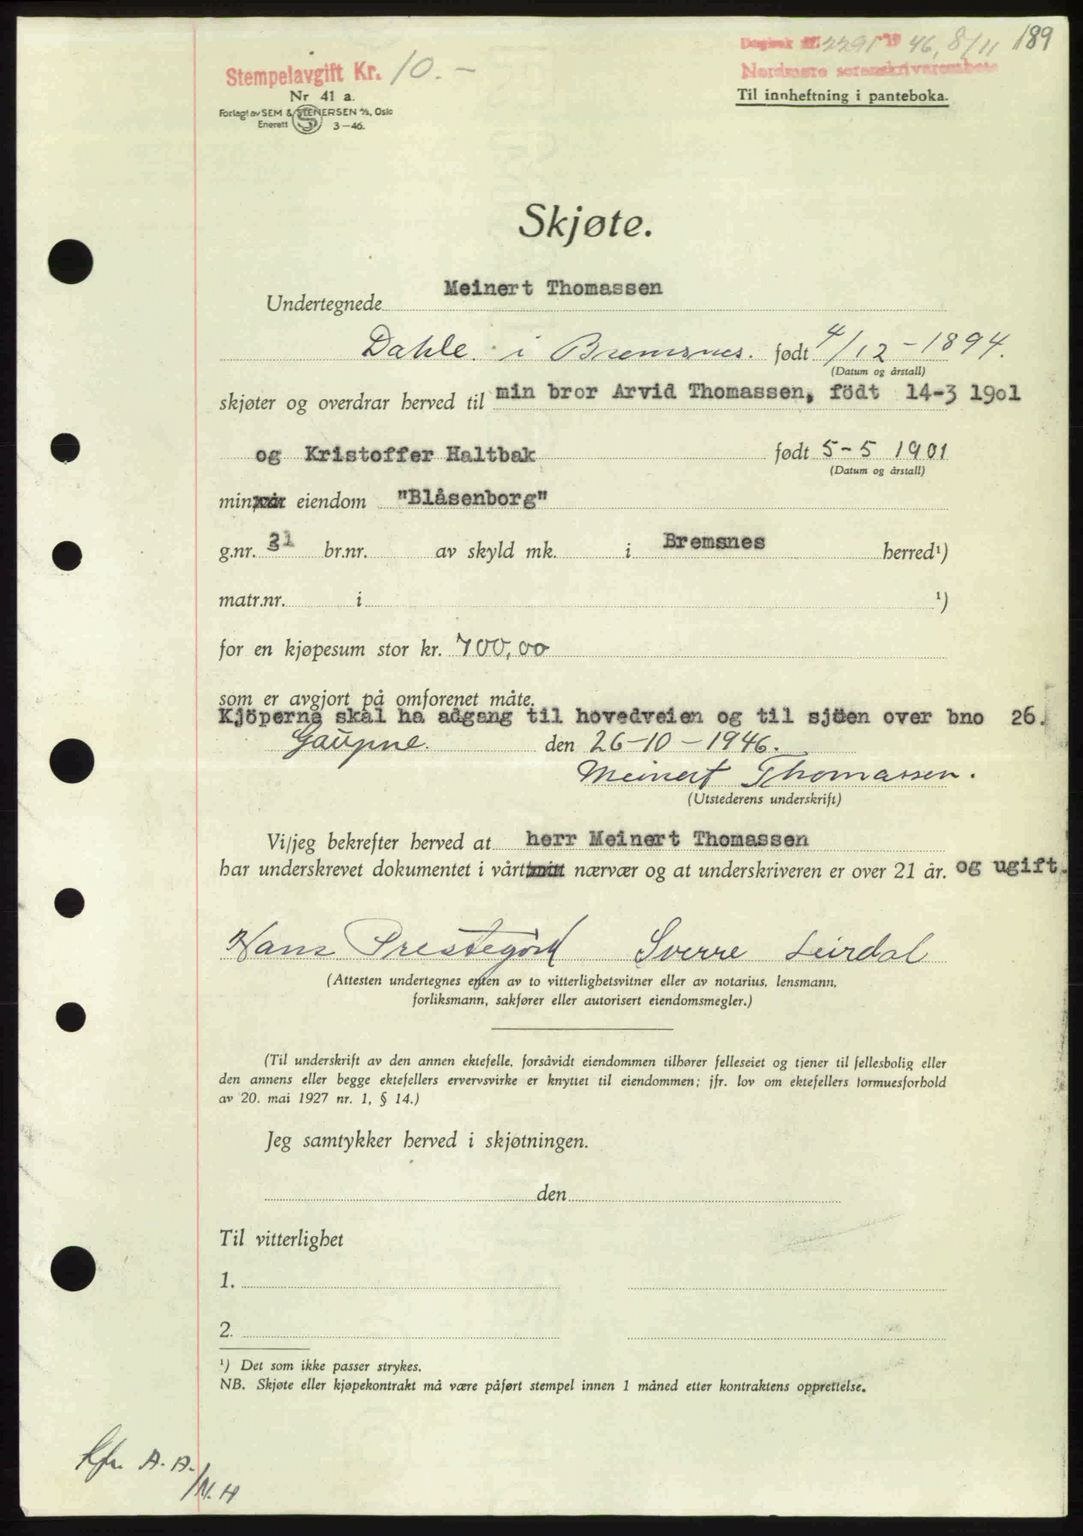 Dagbok nr. 2291 19 46, 8/11 189
Stempelavgift Kr. 10.-
Nordmøre sorenskriverembete
Nr 41 a.
Til innheftning i panteboka.
Forlagt av SEM & STENERSEN A/S, Oslo
Enerett 3-46.
Skjøte.
Undertegnede Meinert Thomassen
Dahle i Bremsnes. født 4/12-1894.
(Datum og årstall)
skjøter og overdrar herved til min bror Arvid Thomassen, födt 14-3 1901
og Kristoffer Haltbak født 5-5 1901
(Datum og årstall)
min eiendom "Blåsenborg"
g.nr. 31 br.nr. av skyld mk. i Bremsnes herred¹)
matr.nr. i ¹)
for en kjøpesum stor kr. 700,00
som er avgjort på omforenet måte.
Kjöperna skal ha adgang til hovedveien og til sjöen over bno 26.
Gaupne. den 26-10-1946.
Meinert Thomassen.
(Utstederens underskrift)
Vi/jeg bekrefter herved at herr Meinert Thomassen
har underskrevet dokumentet i vårt nærvær og at underskriveren er over 21 år. og ugift.
Hans Prestegård Sverre Leirdal
(Attesten undertegnes enten av to vitterlighetsvitner eller av notarius, lensmann,
forliksmann, sakfører eller autorisert eiendomsmegler.)
(Til underskrift av den annen ektefelle, forsåvidt eiendommen tilhører felleseiet og tjener til fellesbolig eller
den annens eller begge ektefellers ervervsvirke er knyttet til eiendommen; jfr. lov om ektefellers formuesforhold
av 20. mai 1927 nr. 1, § 14.)
Jeg samtykker herved i skjøtningen.
den
Til vitterlighet
1.
2.
¹) Det som ikke passer strykes.
NB. Skjøte eller kjøpekontrakt må være påført stempel innen 1 måned etter kontraktens opprettelse.
A. A.
/N. H